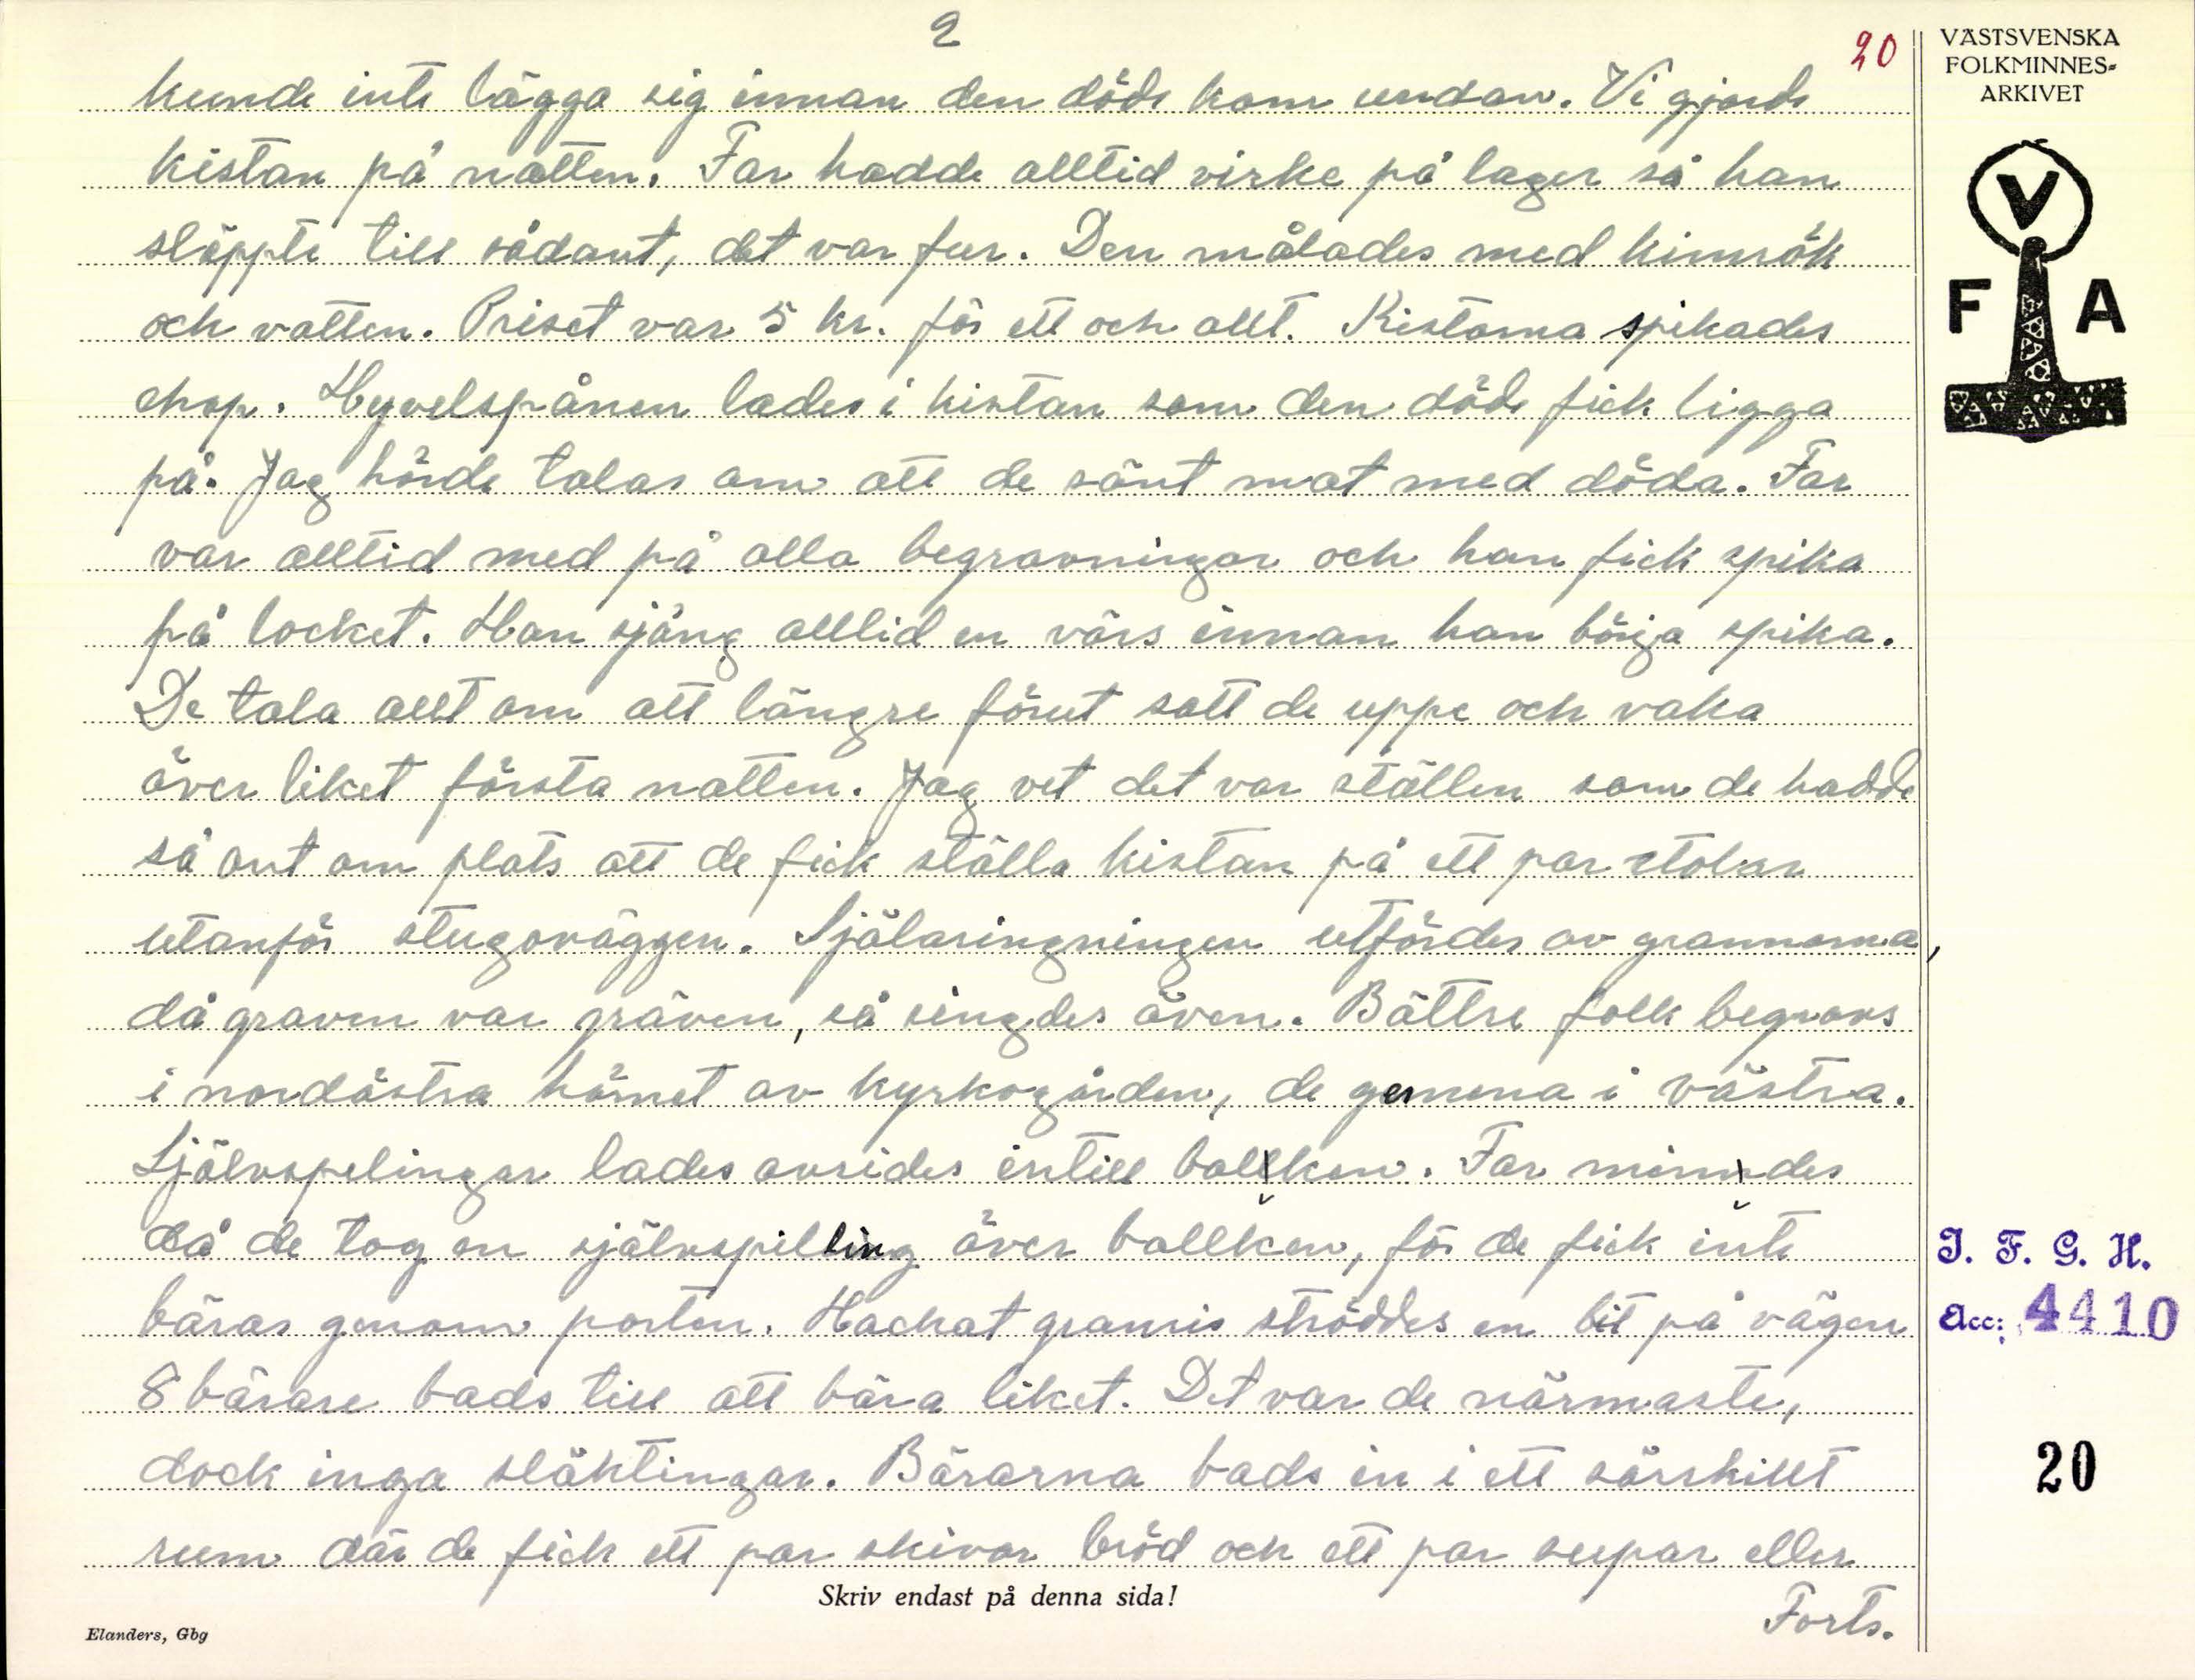 2
20
kunde inte lägga sig innan den döde kom undan. Vi gjorde
kistan på natten. Far hadde alltid virke på lager så han
släppte till sådant, det var fur. Den målades med kimrök
och vatten. Priset var 5 kr. för ett och allt. Kistorna spikades
ehop. Hyvelspånen lades i kistan som den döde fick ligga
på. Jag hörde talas om att de sänt mat med döda. Far
var alltid med på alla begravningar och han fick spika
på locket. Han sjöng alltid en värs innan han börja spika.
De tala allt om att längre förut satt de uppe och vaka
över liket första natten. Jag vet det var ställen som de hadde
så ont om plats att de fick ställa kistan på ett par stolar
utanför stugoväggen. Själaringningen utfördes av grannarna,
då graven var gräven, så ringdes även. Bättre folk begravs
i nordöstra hörnet av kyrkogården, de gemena i västra.
Självspelingar lades avsides intill balken. Far mindes
då de tog en självspilling över ballken, för de fick inte
bäras genom porten. Hackat granris ströddes en bit på vägen
8 bärare bads till att bära liket. Det var de närmaste,
dock inga släktingar. Bärarna bads in i ett särskillt
rum där de fick ett par skivor bröd och ett par supar eller
Forts.
Skriv endast på denna sida!
Elanders, Gbg
VÄSTSVENSKA
FOLKMINNES-
ARKIVET
V
F A
I. F. G. H.
Acc: 4410
20